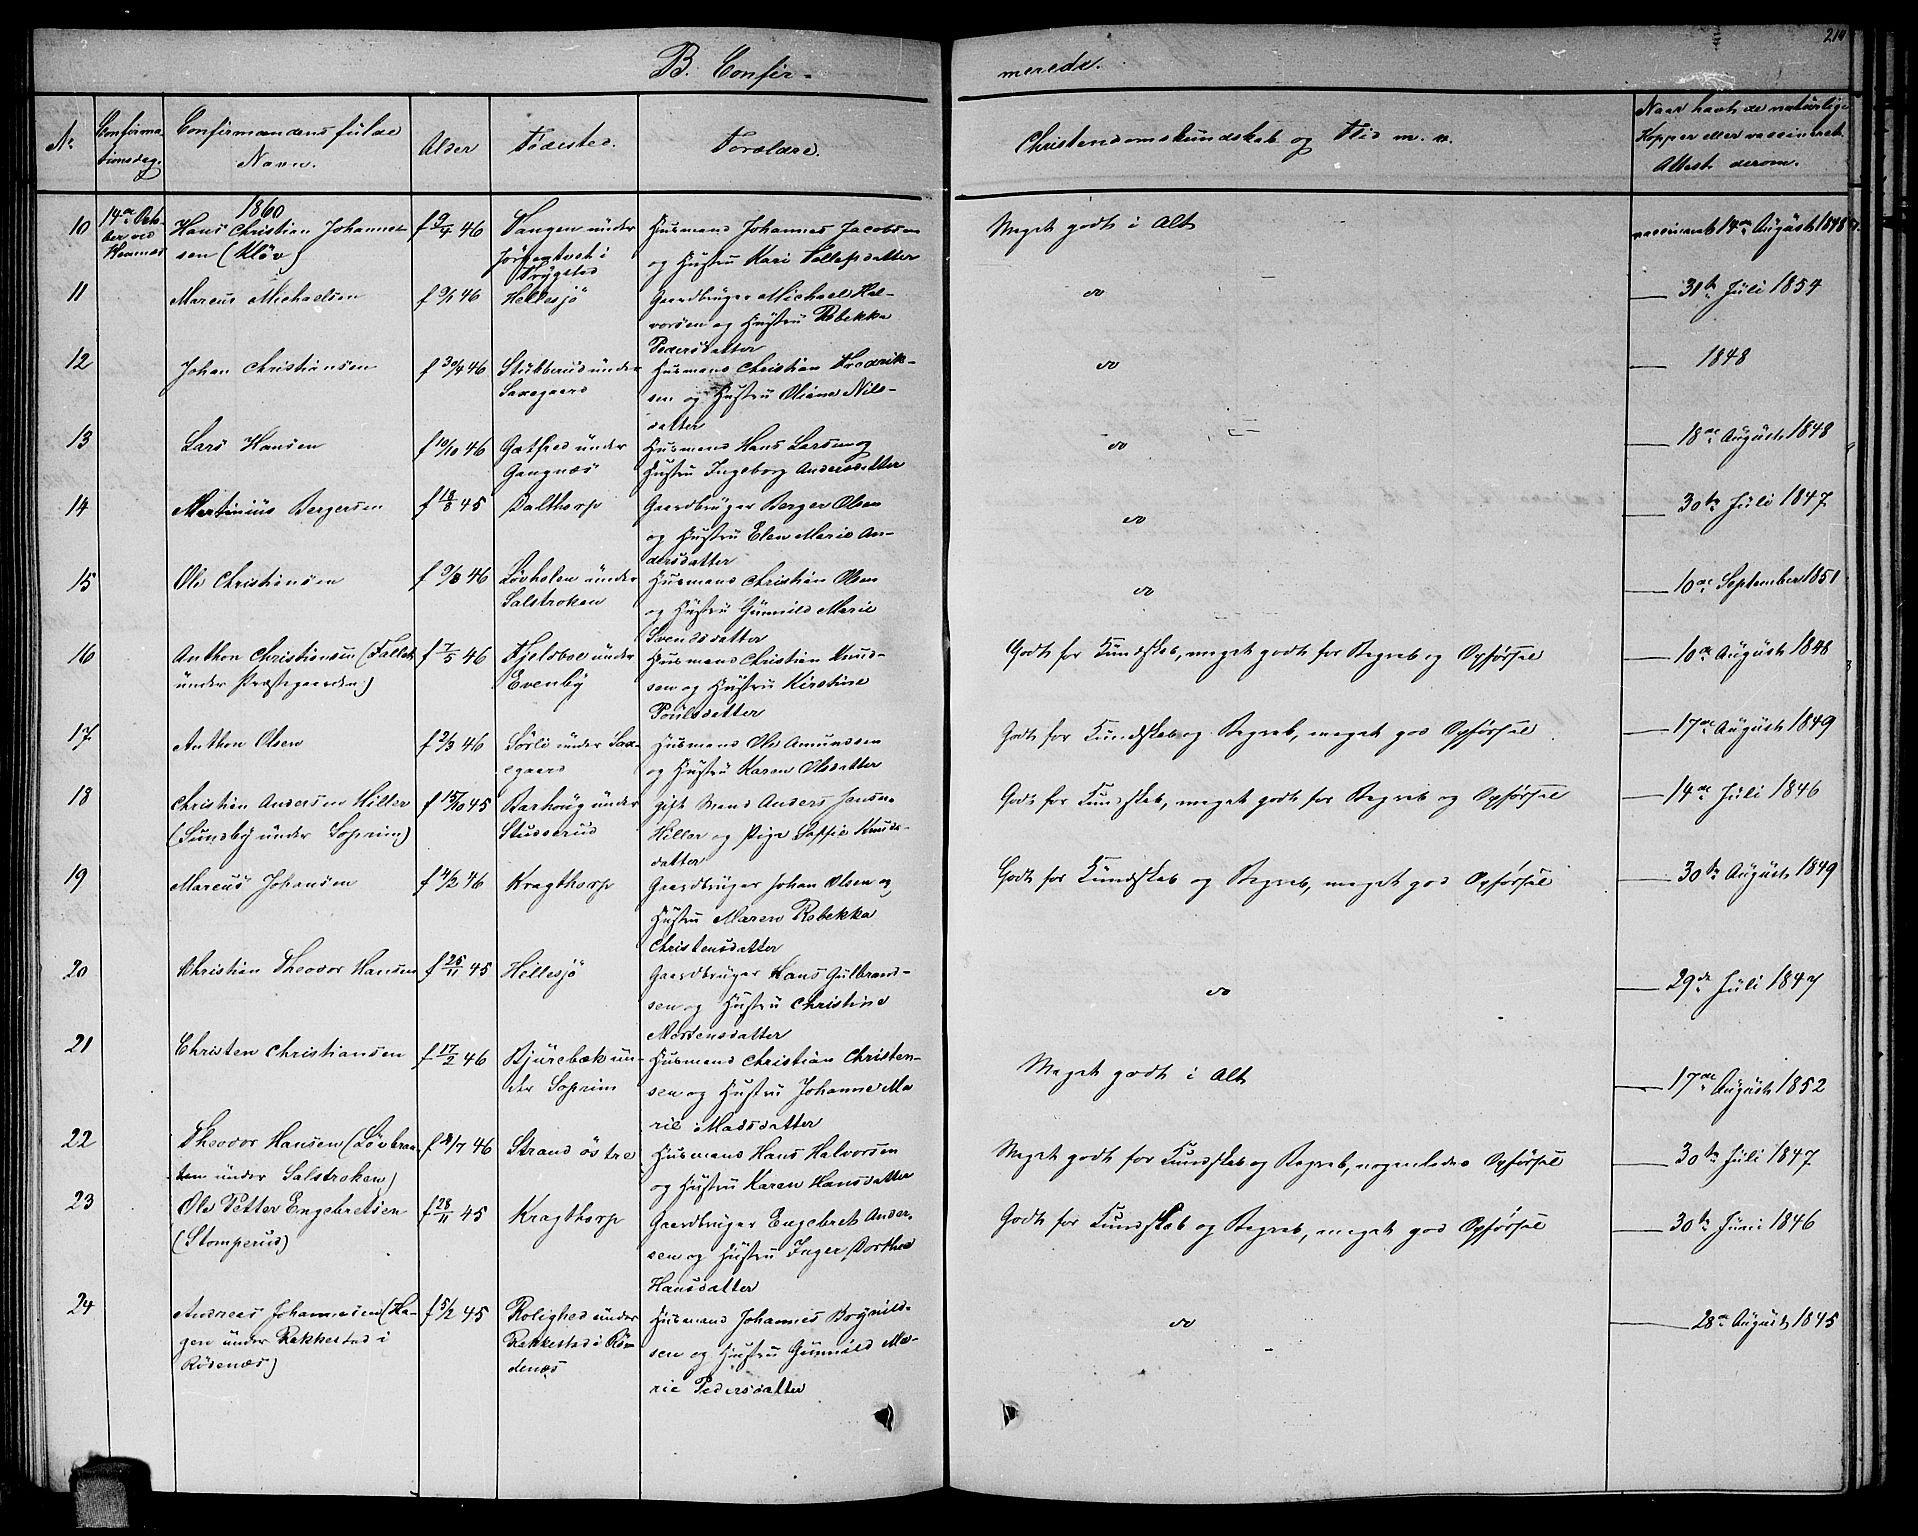 214
B. Confir-
merede.
No
Confirma-
tionsdag.
Confirmandens fulde
Navn.
Alder
Fødested.
Forældre.
Christendomskundskab og Flid m. v.
Naar havt de naturlige
Kopper eller vaccineret.
Attest derom.
1860
10
14de Octo-
ber ved
Hemnes
Hans Christian Johannes-
sen (Kløv)
f 9/4 46
Vangen under
i
Trygstad
Husmand Johannes Jacobsen
og Hustru Kari Tollefsdatter
Meget godt i Alt
vaccineret 14de August 1848
11
Marcus Michaelsen
f 9/1 46
Hellesjö
Gaardbruger Michael Hal-
vorsen og Hustru Rebekka
Pedersdatter
do
— 31te Juli 1854
12
Johan Christiansen
f 30/9 46
Stubberud under
Saxegaard
Husmand Christian Fredrik-
sen og Hustru Oliane Nils-
datter
do
— 1848
13
Lars Hansen
f 10/10 46
under
Gangnæs
Husmand Hans Larsen og
Hustru Ingeborg Andersdatter
do
— 18de August 1848
14
Martinius Bergersen
f 18/8 45
Dalthorp
Gaardbruger Berger Olsen
og Hustru Elen Marie An-
dersdatter
do
— 30te Juli 1847
15
Ole Christiansen
f 9/8 46
Løvholen under
Salstroken
Husmand Christian Olsen
og Hustru Gunnild Marie
Svendsdatter
do
— 10de September 1851
16
Anthon Christiansen (Fallet
under Præstegaarden)
f 7/5 46
Fjeldboe under
Evenby
Husmand Christian Knud-
sen og Hustru Kirstine
Poulsdatter
Godt for Kundskab, meget godt for Begreb og Opførsel
— 10de August 1848
17
Anthon Olsen
f 2/3 46
Sørli under Sax-
egaard
Husmand Ole Amundsen
og Hustru Karen Olsdatter
Godt for Kundskab og Begreb, meget god Opførsel
— 17de August 1849
18
Christian Andersen Hiller
(Sundby under Soprim)
f 15/10 45
Barhoug under
Studserud
gift Mand Anders Jansen-
Hiller og Pige Saffie Knuds-
datter
Godt for Kundskab, meget godt for Begreb og Opførsel
— 14de Juli 1846
19
Marcus Johansen
f 4/2 46
Kragthorp
Gaardbruger Johan Olsen og
Hustru Maren Rebekka
Christensdatter
Godt for Kundskab og Begreb, meget god Opførsel
— 30te August 1849
20
Christian Theodor Hansen
f 25/11 45
Hellesjö
Gaardbruger Hans Gulbrand-
sen og Hustru Christine
Mortensdatter
do
— 29de Juli 1847
21
Christen Christiansen
f 17/2 46
Bjurebæk un-
der Soprim
Husmand Christian Christen-
sen og Hustru Johanne Ma
rie Madsdatter
Meget godt i Alt
— 17de August 1852
22
Theodor Hansen (Løvbraa-
ten under Salstroken)
f 21/7 46
Strand östre
Husmand Hans Halvorsen
og Hustru Karen Hansdatter
Meget godt for Kundskab og Begreb, nogenledes Opførsel
— 30te Juli 1847
23
Ole Petter Engebretsen
(Stomperud)
f 28/11 45
Kragthorp
Gaardbruger Engebret Ander-
sen og Hustru Inger Dorthea
Hansdatter
Godt for Kundskab og Begreb, meget god Opførsel
— 30te Juni 1846
24
Andreas Johannesen (Ha-
gen under Rakkestad i
Rødenæs)
f 5/2 45
Rolighed under
Rakkestad i Rø-
denæs
Husmand Johannes Bognild-
sen og Hustru Gunnild Ma-
rie Pedersdatter
do
— 28de August 1845